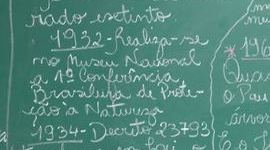 riado extinto.
1932 - Realiza-se
no Museu Nacional
a 1ª Conferência
Brasileira de Prote-
ção à Natureza
1934 - Decreto 23793
196
Quas
o Pau
árvor